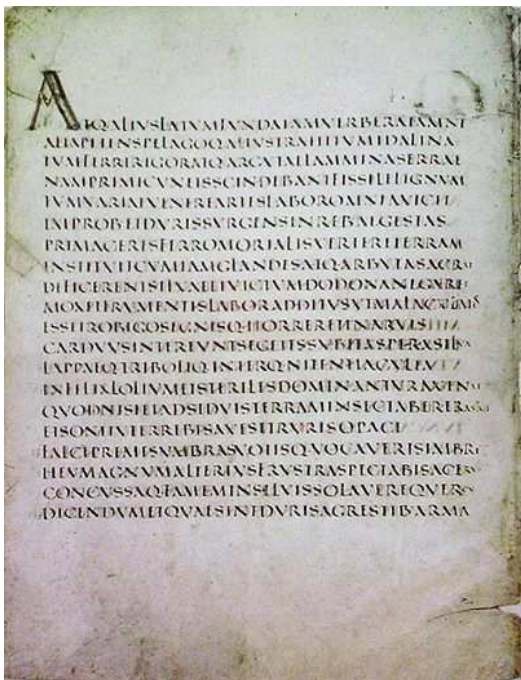 ATQALIVSLATVMFVNDAIAMVERBERATAMNE
ALTAPETENSPELAGOQALIVSTRAHITVMIDALINA
TVMFERRIRIGORATQARGVTAELAMMINASERRAE
NAMPRIMICVNEISSCINDEBANTFISSILELIGNVM
TVMVARIAEVENEREARTESLABOROMNIAVICIT
IMPROBETDVRISVRGENSINREBVSEGESTAS
PRIMACERESFERROMORTALISVERTERETERRAM
INSTITVITCVMIAMGLANDESATQARBVTASACRAE
DEFICERENTSILVAEETVICTVMDODONANEGARET
MOXETFRVMENTISLABORADDITVSVTMALACVLMOS
ESSETROBIGOSEGNISQHORRERETINARVIS
CARDVVSINTEREVNTSEGETESSVBITASPERASILVA
LAPPAEQTRIBOLIQINTERQNITENTIACVLTA
INFELIXLOLIVMETSTERILESDOMINANTVRAVENAE
QVODNISIETADSIDVISTERRAMINSECTABERERASTRIS
ETSONITVTERREBISAVESETRVRISOPACI
FALCEPREMESVMBRASVOTISQVOCAVERISIMBRE
HEVMAGNVMALTERIVSFRVSTRASPECTABISACERV
CONCVSSAQFAMEMINSILVISSOLAVEREQVERCV
DICENDVMETQVAESINTDVRISAGRESTIBARMA